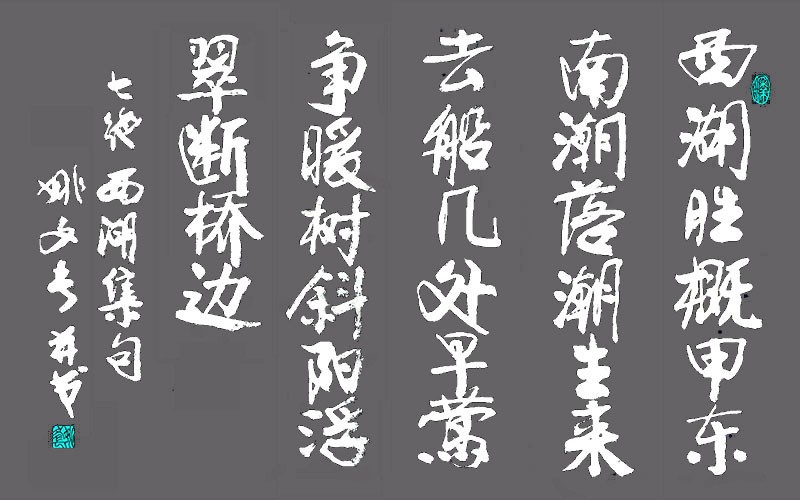 西湖胜概甲东
南潮落潮生来
去船几处早莺
争暖树斜阳浮
翠断桥边
七绝西湖集句
姚文长并书